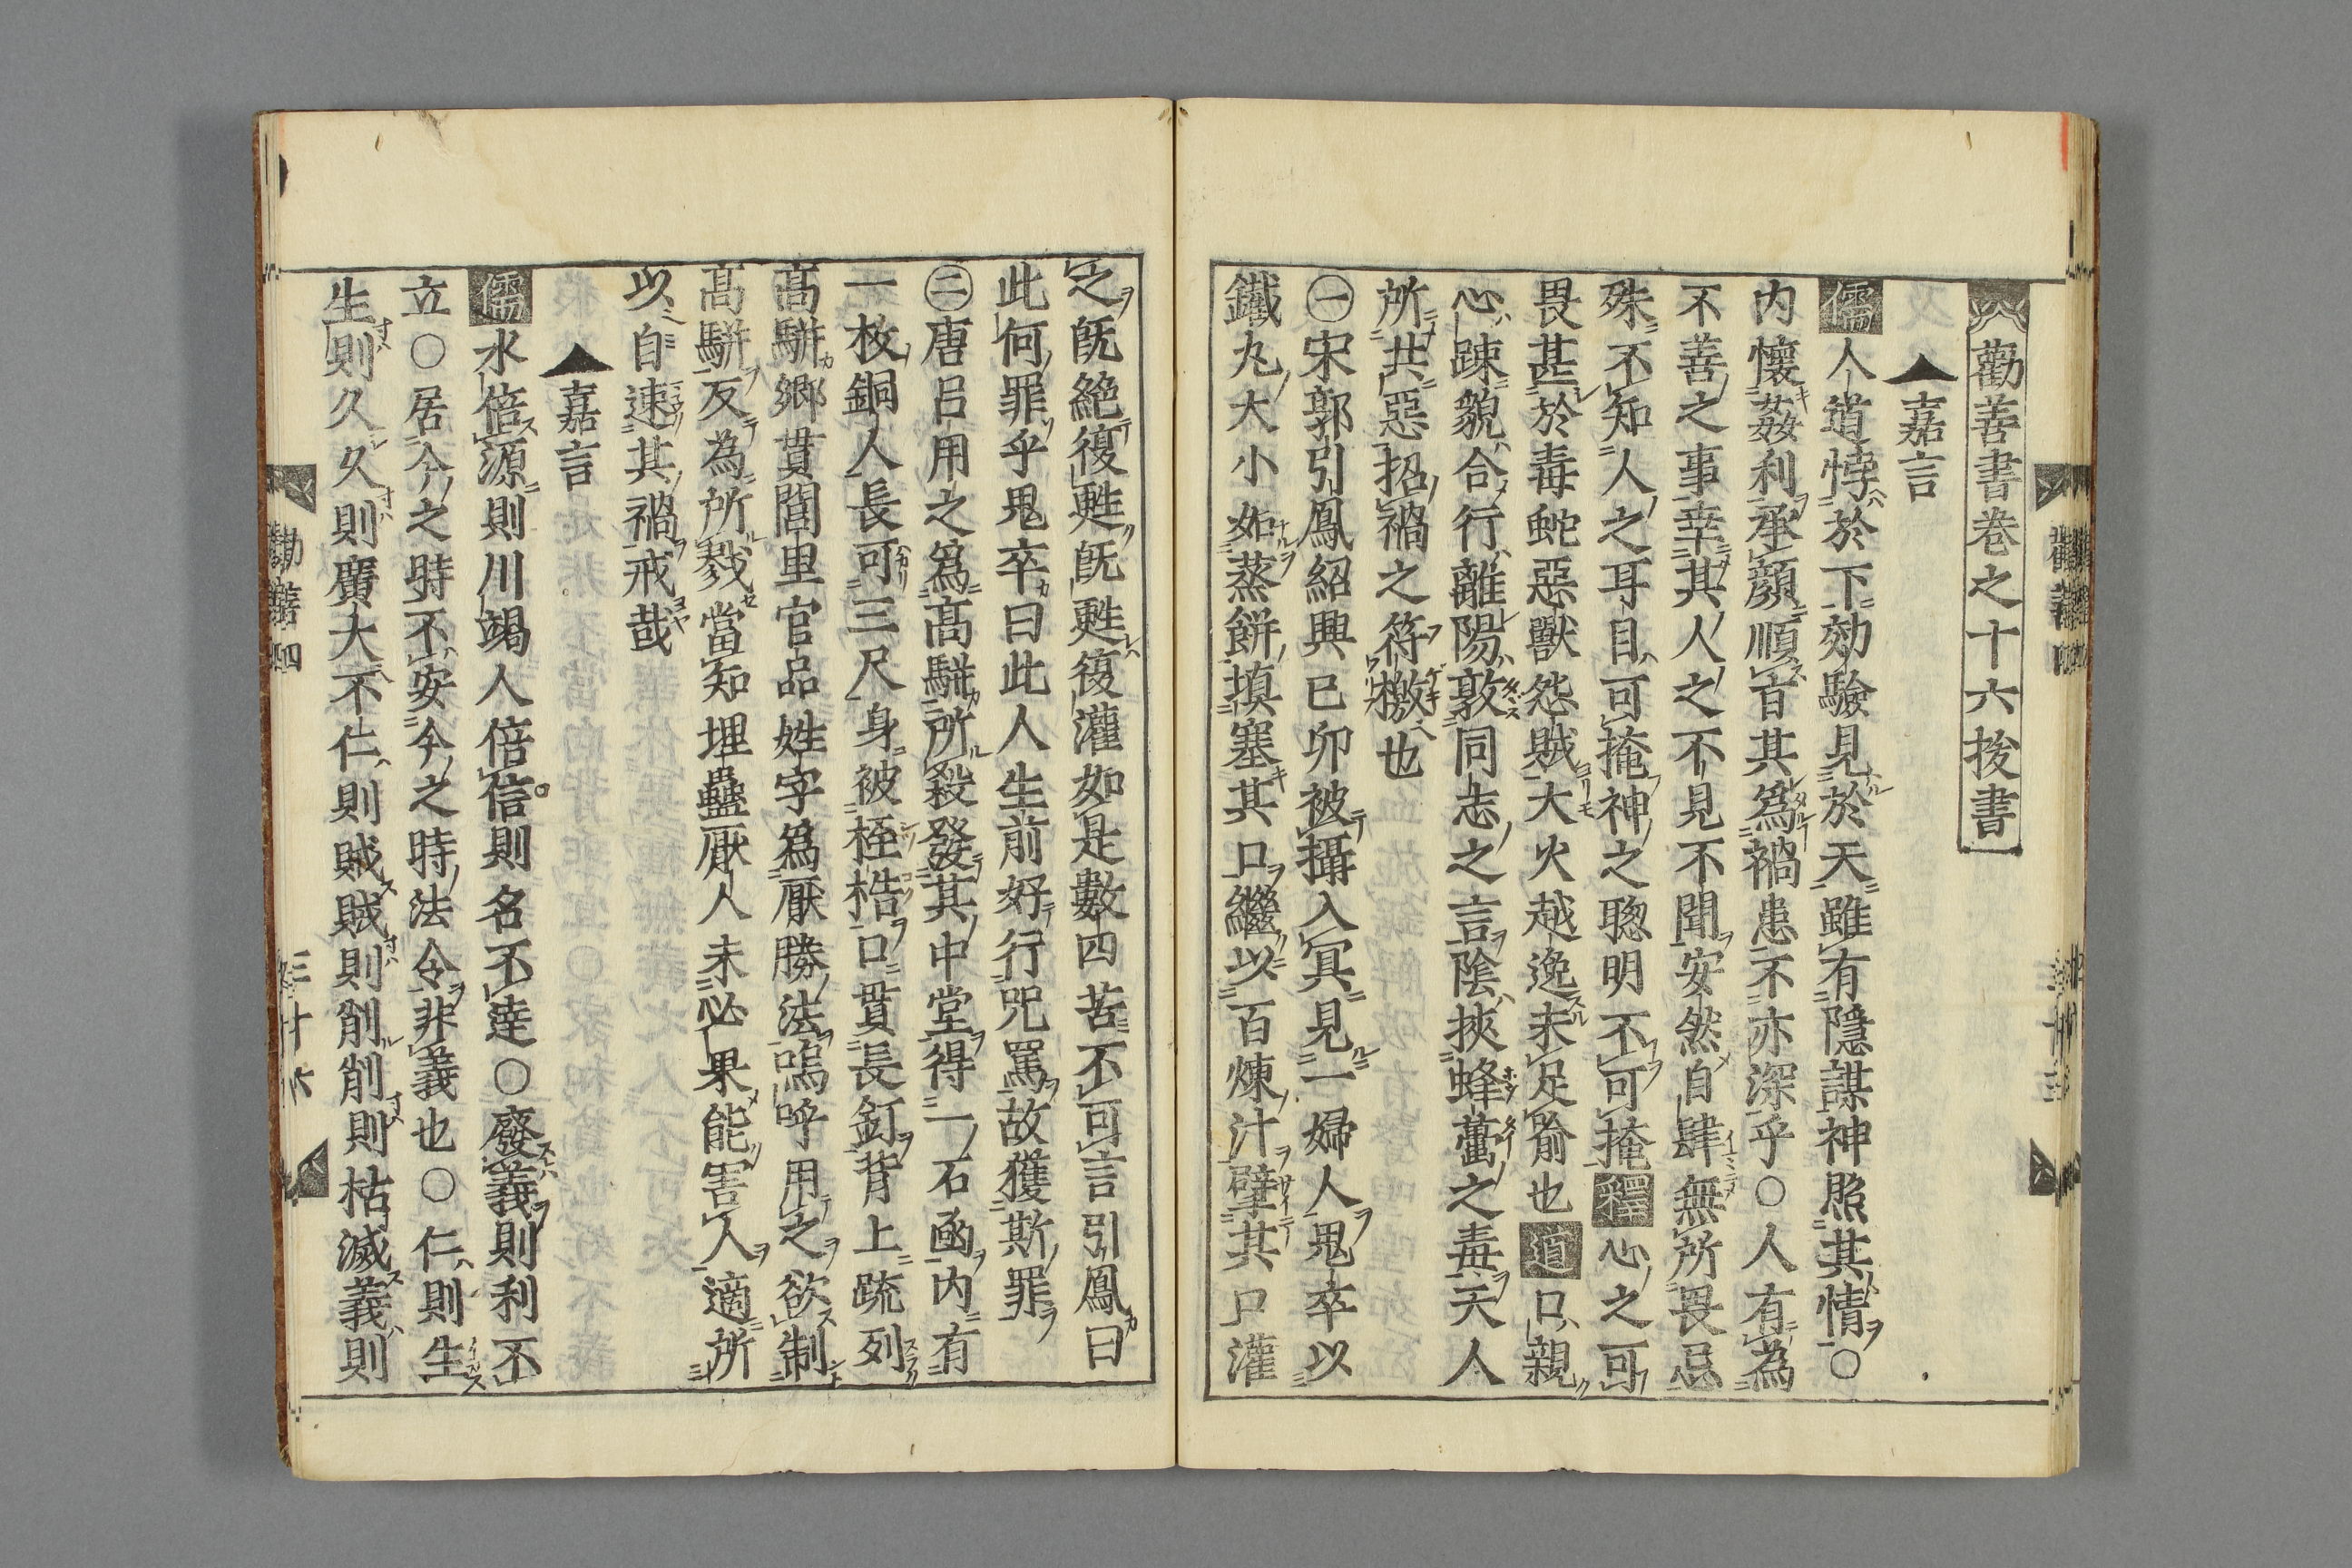 勸善書巻之十六抜書
嘉言
儒人道悖於下効驗見於天雖有隱謀神照其情〇
内懐姦利承顔順旨其為禍患不亦深乎〇人有為
不善之事幸其人之不見不聞安然自肆無所畏忌
殊不知人之耳目可掩神之聰明不可掩釋心之可
畏甚於毒蛇惡獸怨賊大火越逸未足喻也道口親
心踈貌合行離陽敦同志之言陰挾蜂蠆之毒天人
所共惡招禍之符檄也
㊀宋郭引鳳紹興己卯被攝入冥見一婦人鬼卒以
鐵丸大小如蒸餅填塞其口繼以百煉汁擘其口灌
之既絶復甦既甦復灌如是數四苦不可言引鳳曰
此何罪乎鬼卒曰此人生前好行咒罵故獲斯罪
㊁唐呂用之為髙駢所殺發其中堂得一石凾内有
一枚銅人長可三尺身被桎梏口貫長釘背上疏列
髙駢郷貫閭里官品姓字為厭勝法嗚呼用之欲制
髙駢反為所戮當知埋蠱厭人未必果能害人適所
以自速其禍戒哉
嘉言
儒水倍源則川竭人倍信則名不達〇廢義則利不
立〇居今之時不安今之時法令非義也〇仁則生
生則久久則廣大不仁則賊賊則削削則枯滅義則
勸善四
三十六